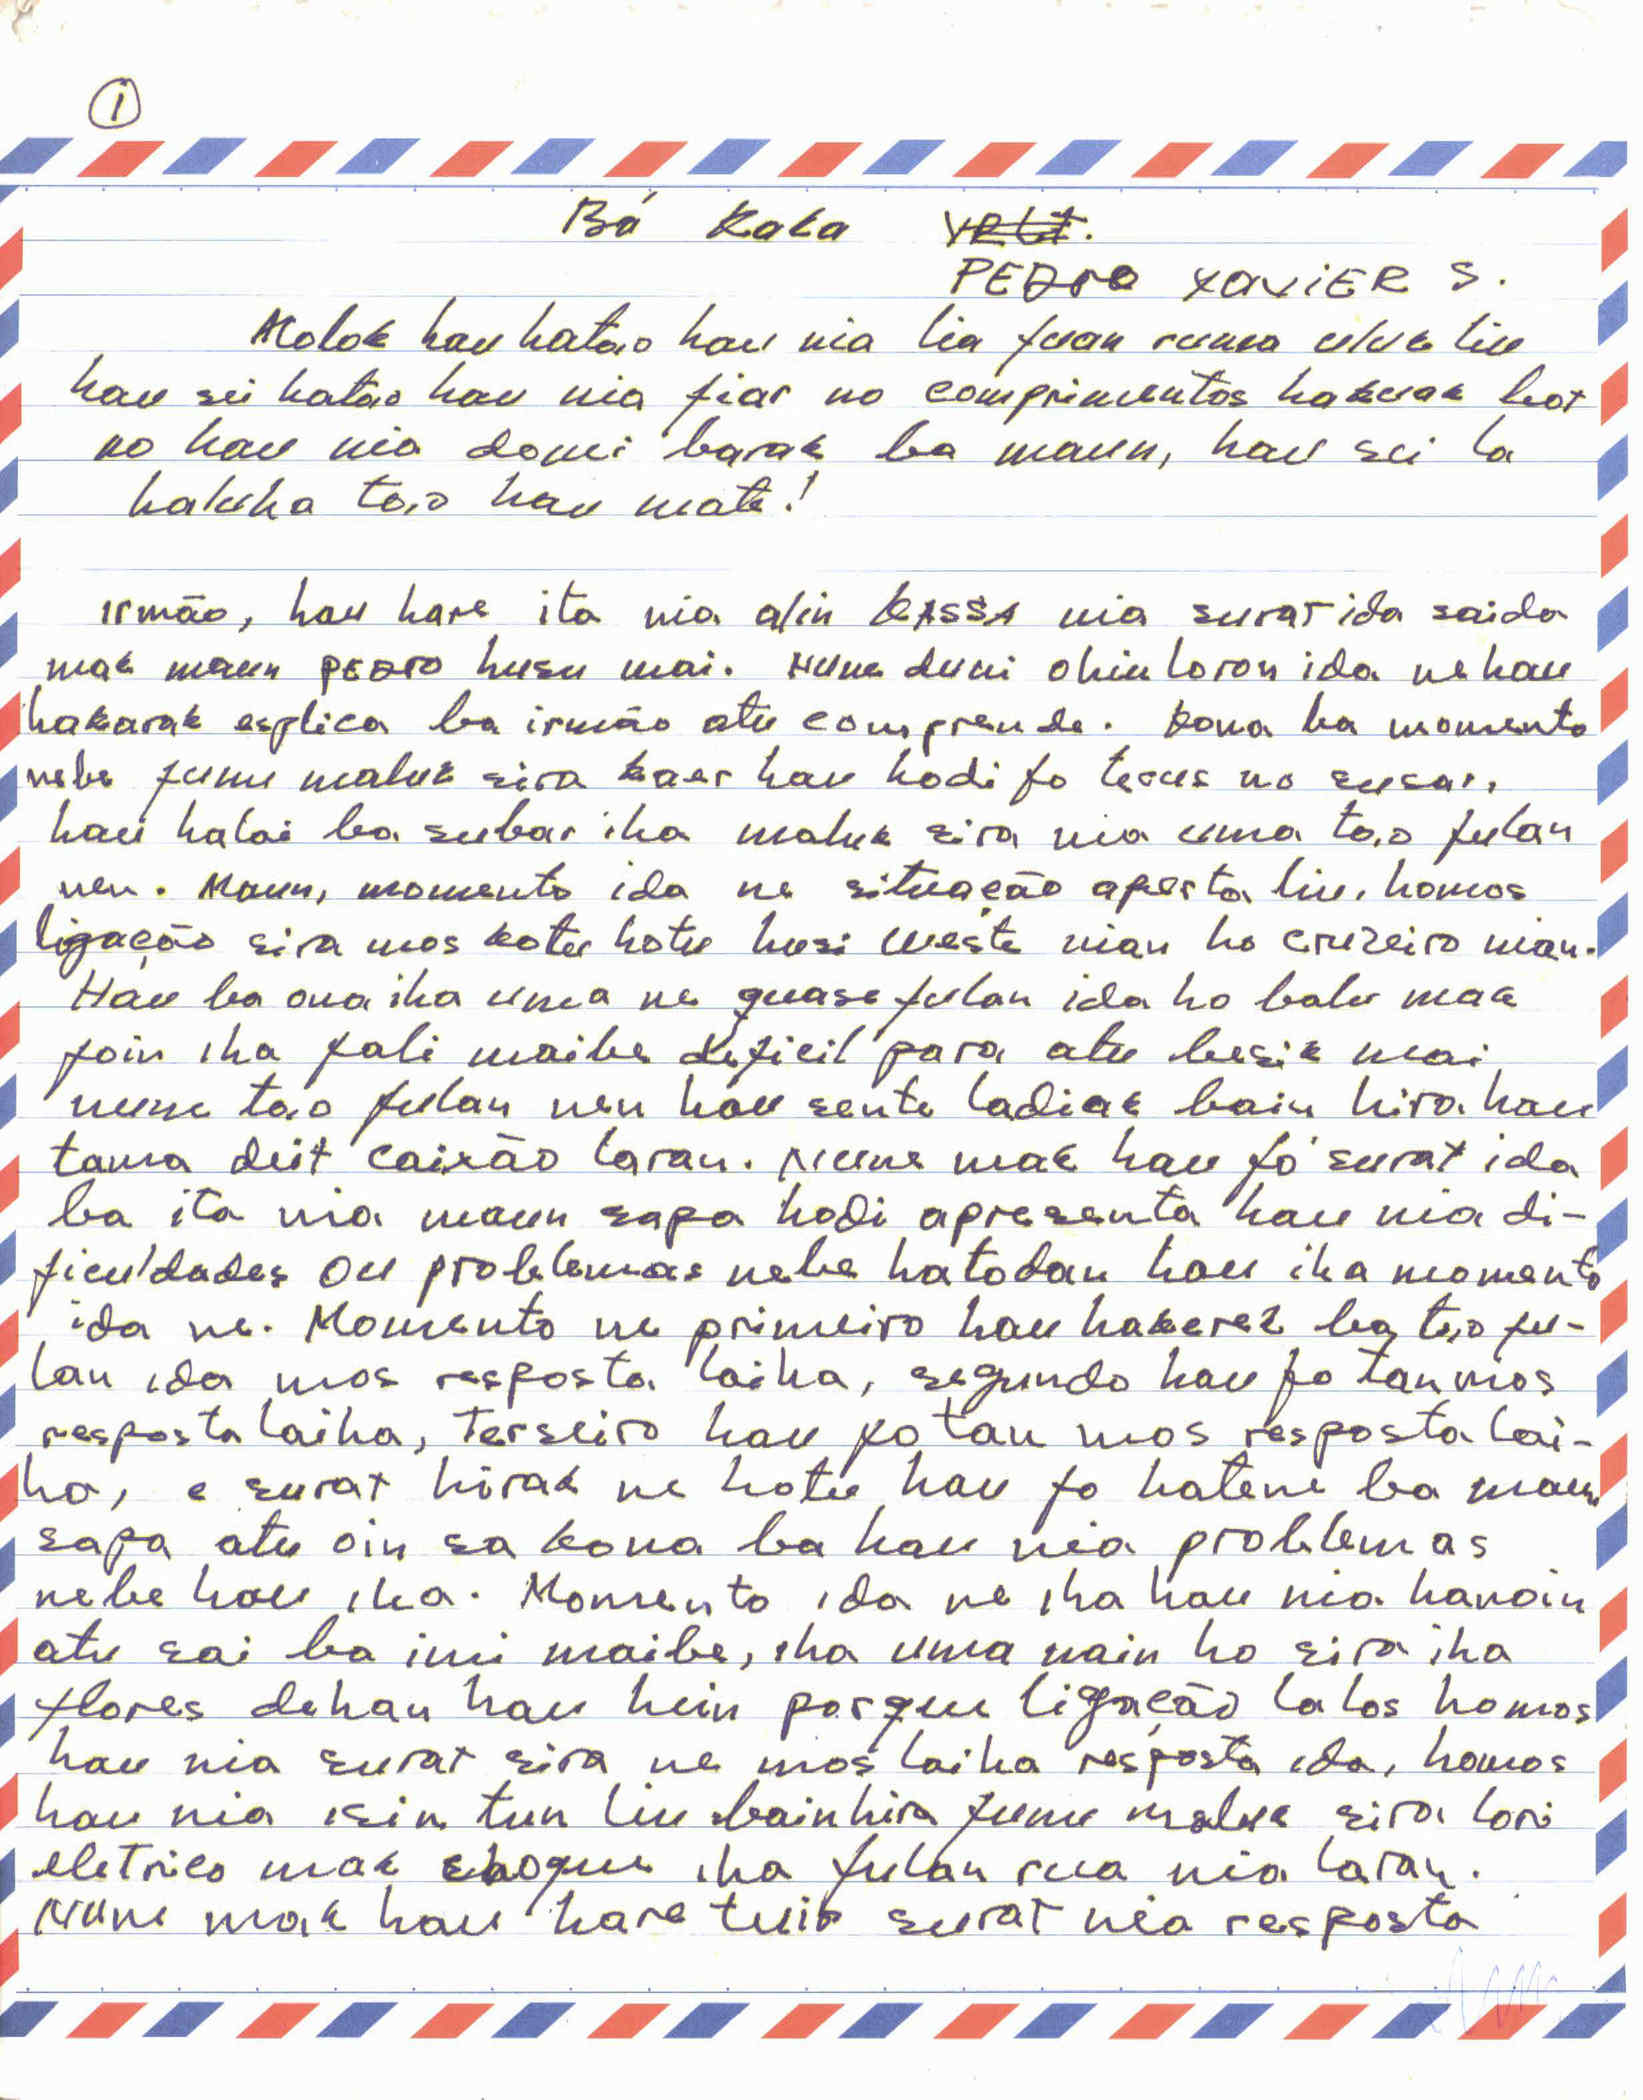 1
Bá Kaka
PEDro XAVIER S.
Molok hau hatao hau nia lia fuan ruma uluk liu
hau sei hatao hau nia fiar no comprimentos hakuak bot
no hau nia domi barak ba maun, hau sei la
haluha to,o hau mate!
irmão, hau hare ita nia alin KASSA nia surat ida saida
mak maun PEDRO husu mai. Nune duni ohin loron ida ne hau
hakarak esplica ba irmão atu comprende. Kona ba momento
nebe funu maluk sira kaer hau hodi fo terus no susar,
hau halai ba subar iha maluk sira nia uma to,o fulan
nen. Maun, momento ida ne situação aperta liu, homos
ligação sira mos kotu hotu husi Weste nian ho cruzeiro nian.
Hau ba ona iha uma ne quase fulan ida ho balu mak
foin iha fali maibe deficil para atu besik mai
nune to,o fulan nen hau sente ladiak bain hira hau
tama deit caixão laran. Nune mak hau fó surat ida
ba ita nia maun sapa hodi apresenta hau nia di-
ficuldades ou problemas nebe hatodan hau iha momento
ida ne. Momento ne primeiro hau hakerek ba to,o fu-
lan ida mos resposta laiha, segundo hau fo tan mos
resposta laiha, Terseiro hau fo tan mos resposta lai-
ha, e surat hirak ne hotu hau fo hatene ba maun
sapa atu oin sa kona ba hau nia problemas
nebe hau iha. Momento ida ne iha hau nia hanoin
atu sai ba imi maibe, iha uma nain ho sira iha
flores dehan hau hein porque ligação la los homos
hau nia surat sira ne mos laiha resposta ida, homos
hau nia isin tun liu bainhira funu maluk sira lori
eletrico mak choque iha fulan rua nia laran.
Nune mak hau hare tuir surat nia resposta